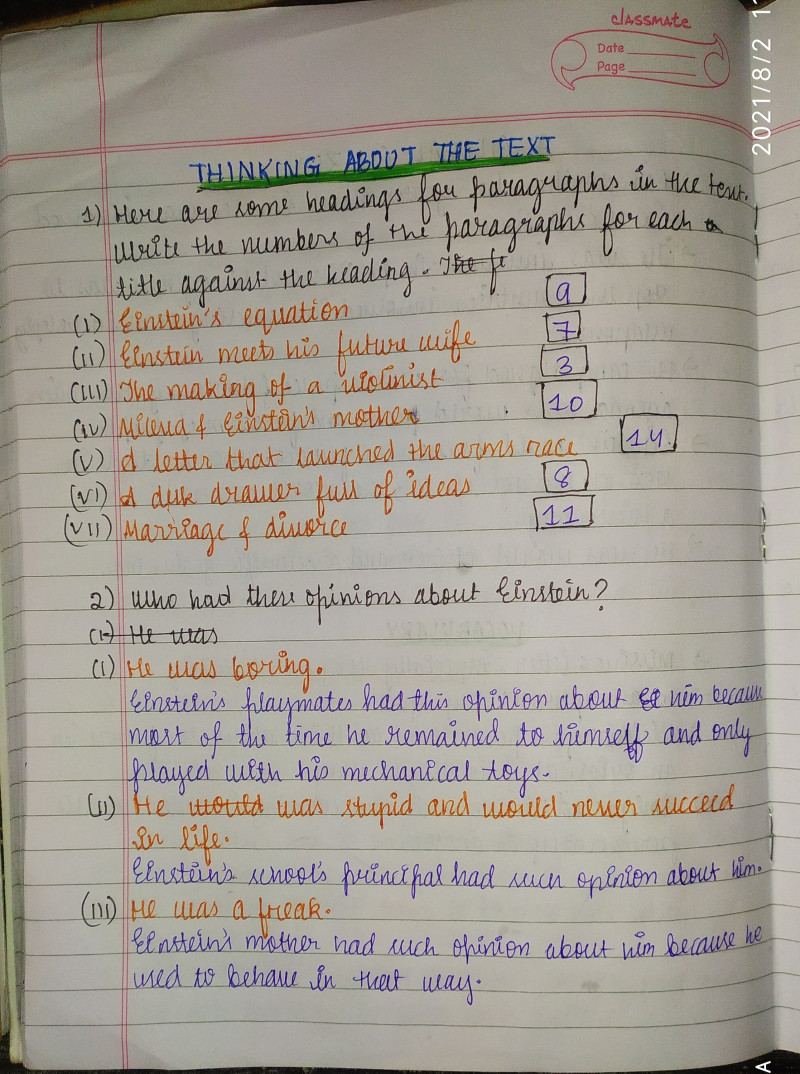 classmate
Date
Page
2021/8/2 1
THINKING ABOUT THE TEXT
1) Here are some headings for paragraphs in the text.
Write the numbers of the paragraphs for each
title against the heading. The fi
(i) Einstein's equation 9
(ii) Einstein meets his future wife 7
(iii) The making of a violinist 3
(iv) Mileva & Einstein's mother 10
(v) A letter that launched the arms race 14.
(vi) A desk drawer full of ideas 8
(vii) Marriage & divorce 11
2) Who had these opinions about Einstein?
(i) He was
(i) He was boring.
Einstein's playmates had this opinion about him because
most of the time he remained to himself and only
played with his mechanical toys.
(ii) He would was stupid and would never succeed
in life.
Einstein's school's principal had such opinion about him.
(iii) He was a freak.
Einstein's mother had such opinion about him because he
used to behave in that way.
A